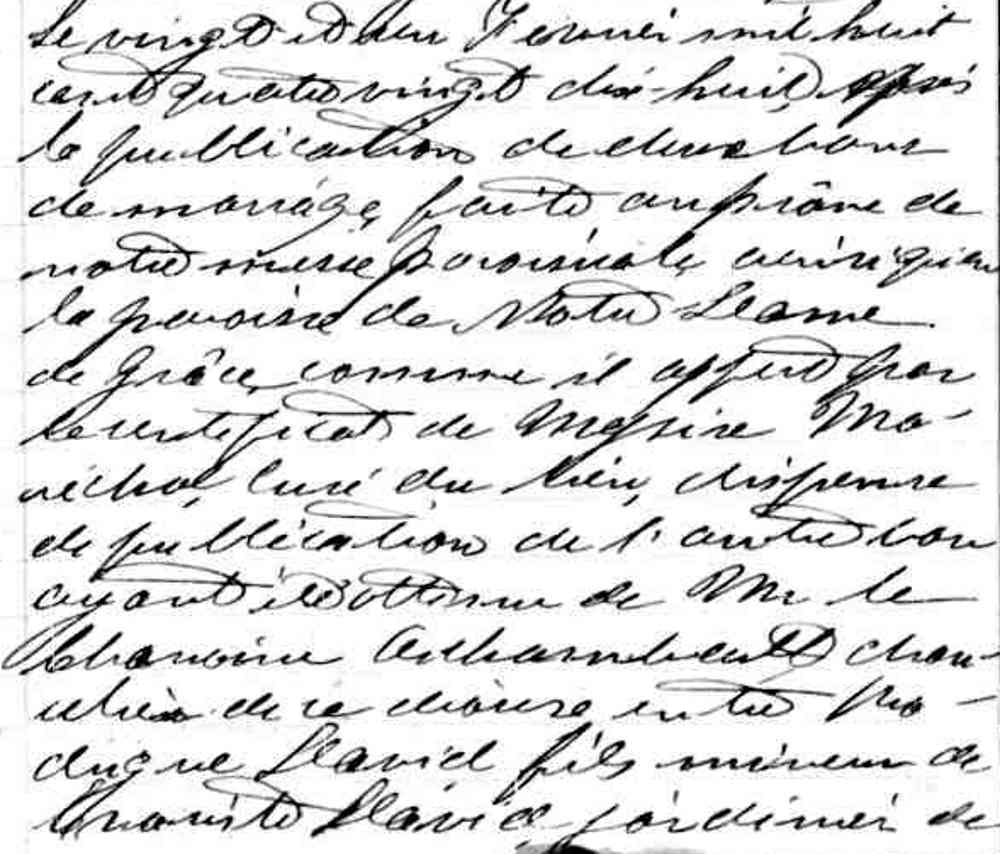 Le vingt et deux Fevrier mil huit
cent quatre vingt dix-huit, après
la publication de deux bans
de mariage, faite au prône de
notre messe paroissiale, ainsi qu'en
la paroisse de Notre-Dame
de Grâce, comme il appert par
le certificat de Messire Ma-
réchal, Curé du lieu, dispense
de publication de l'autre ban
ayant été obtenue de Mr le
Chanoine Archambeault chan-
celier de ce diocèse, entre Ro-
drigue David fils mineur de
David jardinier de